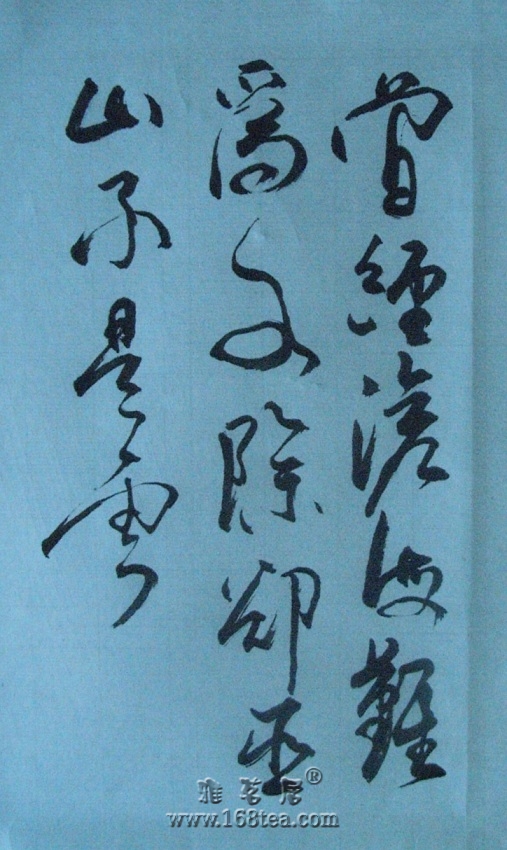 曾經滄海難
為水除卻巫
山不是雲
雅茗居®
www.168tea.com